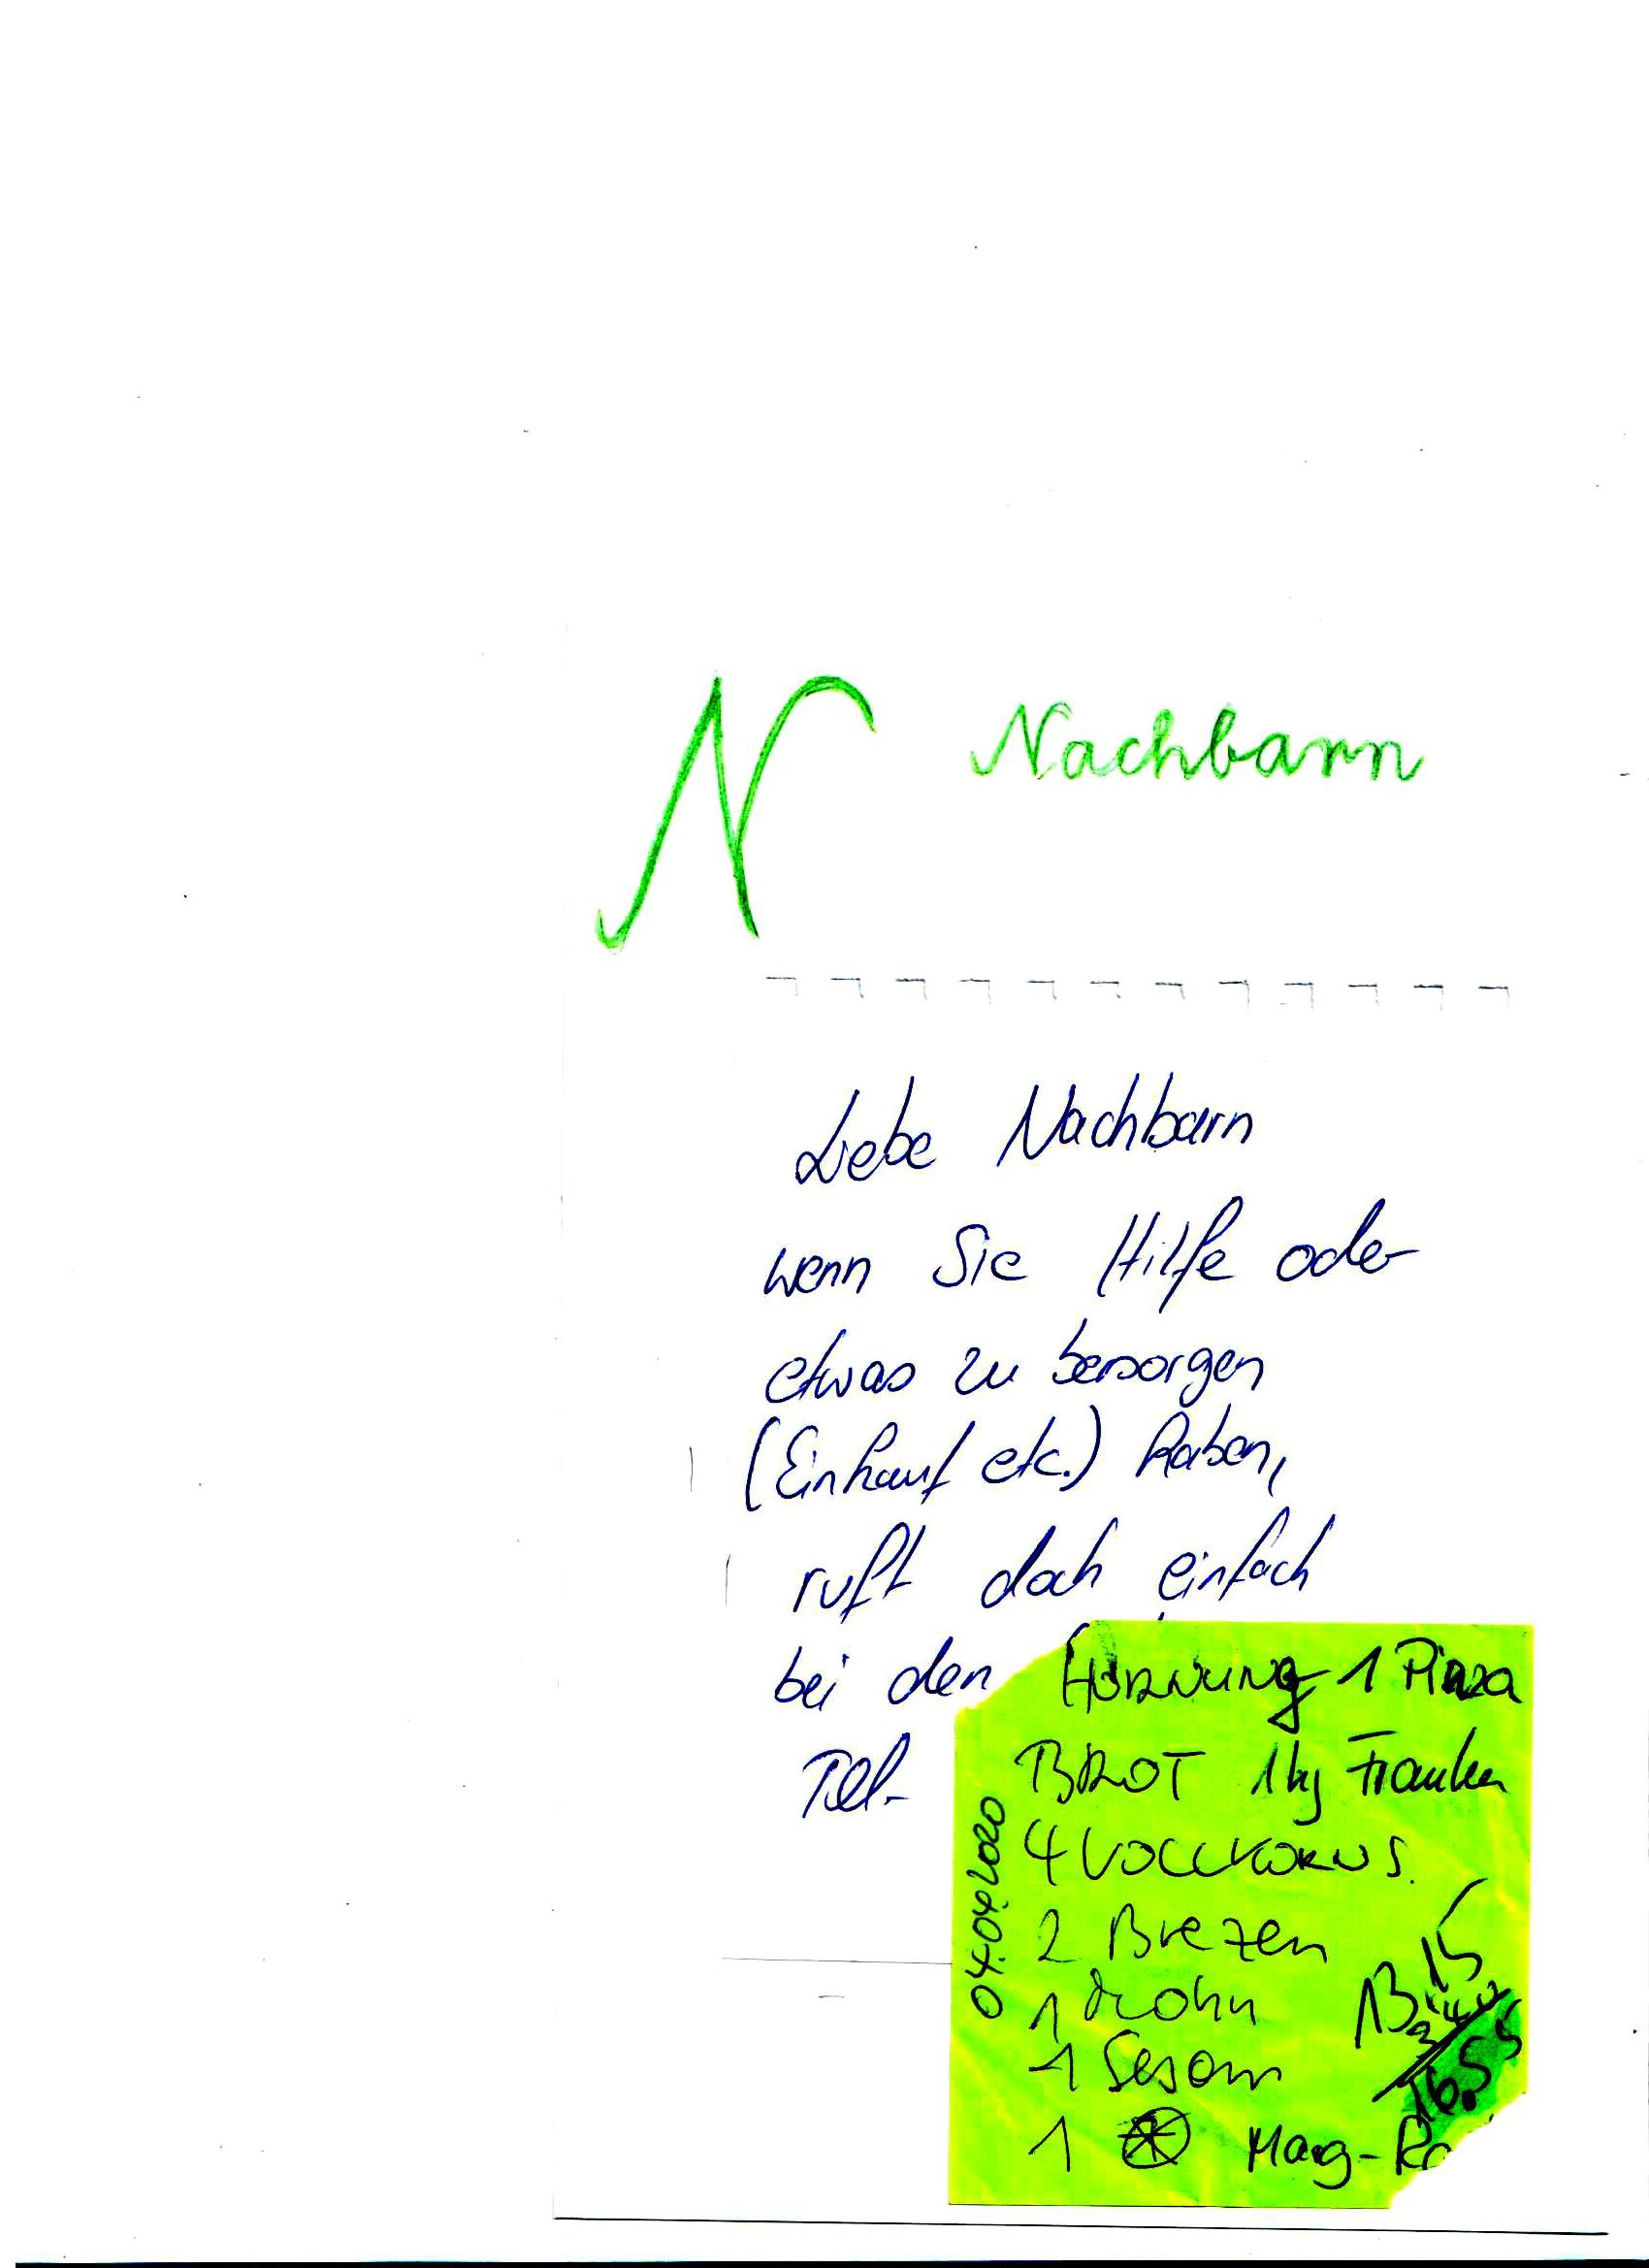 N Nachbarn
Liebe Nachbarn
wenn Sie Hilfe oder
etwas zu besorgen
(Einkauf etc.) haben,
ruft doch einfach
bei den
Tel.
HORNUNG 1 Pinza
BROT 1kg Franken
4 VOLLKORNS.
2 Brezen
1 Mohn
1 Sesam
1 Marg-
04.04.2020
13,15
16.55